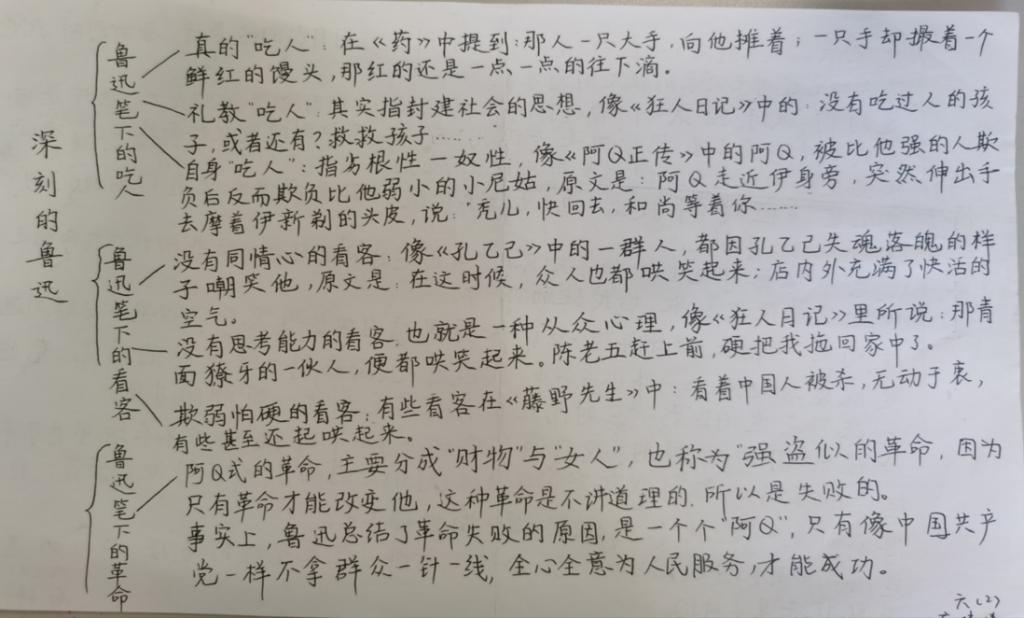 深刻的鲁迅
鲁迅笔下的吃人
真的"吃人"：在《药》中提到：那人一只大手，向他摊着；一只手却撮着一个
鲜红的馒头，那红的还是一点一点的往下滴。
礼教"吃人"：其实指封建社会的思想，像《狂人日记》中的：没有吃过人的孩
子，或者还有？救救孩子……
自身"吃人"：指劣根性一奴性，像《阿Q正传》中的阿Q，被比他强的人欺
负后反而欺负比他弱小的小尼姑，原文是：阿Q走近伊身旁，突然伸出手
去摩着伊新剃的头皮，说："秃儿，快回去，和尚等着你……
鲁迅笔下的看客
没有同情心的看客：像《孔乙己》中的一群人，都因孔乙己失魂落魄的样
子嘲笑他，原文是：在这时候，众人也都哄笑起来；店内外充满了快活的
空气。
没有思考能力的看客.也就是一种从众心理，像《狂人日记》里所说：那青
面獠牙的一伙人，便都哄笑起来。陈老五赶上前，硬把我拖回家中了。
欺弱怕硬的看客：有些看客在《藤野先生》中：看着中国人被杀，无动于衷，
有些甚至还起哄起来。
鲁迅笔下的革命
阿Q式的革命，主要分成"财物"与"女人"，也称为"强盗似的革命，因为
只有革命才能改变他，这种革命是不讲道理的.所以是失败的。
事实上，鲁迅总结了革命失败的原因，是一个个"阿Q"，只有像中国共产
党一样不拿群众一针一线，全心全意为人民服务，才能成功。
六(2)